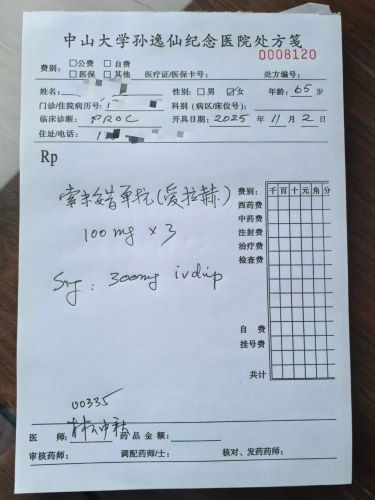 中山大学孙逸仙纪念医院处方笺
0008120
费别: □公费 □自费
□医保 □其他 医疗证/医保卡号: 处方编号:
姓名: 性别: □男 ☑女 年龄: 65 岁
门诊/住院病历号: 1 科别(病区/床位号):
临床诊断: PROC 开具日期: 2025 年 11 月 2 日
住址/电话: 1
Rp
索米妥昔单抗(爱拉赫)
100mg × 3
Sig: 300mg ivdrip
费别: 千 百 十 元 角 分
西药费
中药费
注射费
治疗费
检查费
自 费
挂号费
共计
00335
医 师: 药品金额:
审核药师: 调配药师/士: 核对、发药药师: